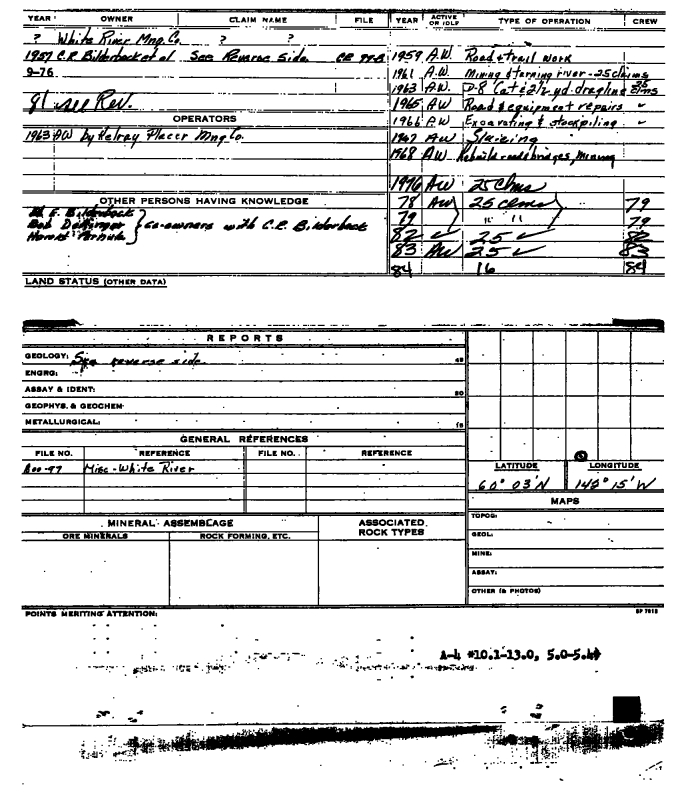 YEAR OWNER CLAIM NAME FILE YEAR ACTIVE OR IDLE TYPE OF OPERATION CREW
? White River Mng. Co. ? ?
1957 C.R. Bilderback et al See Reverse Side. 1959 A.W. Road & trail work
9-76 1961 A.W. Mining & turning river - 25 claims
1963 A.W. D-8 Cat & 2 1/2 yd. dragline
81 see Rev. 1965 AW Road & equipment repairs
OPERATORS 1966 A.W. Excavating & stockpiling
1963 AW by Kelray Placer Mng Co. 1967 AW Sluicing
1968 A.W. Rebuild roads, bridges, mining
1976 AW 25 Clms
OTHER PERSONS HAVING KNOWLEDGE 78 AW 25 clms 79
E. Bilderback 79 " " 79
Bob } Co-owners with C.R. Bilderback 82 ✓ 25 ✓ 82
Harold 83 AW 25 ✓ 83
84 16 84
LAND STATUS (OTHER DATA)
REPORTS
GEOLOGY: See reverse side.
ENGRG:
ASSAY & IDENT:
GEOPHYS. & GEOCHEM
METALLURGICAL:
GENERAL REFERENCES
FILE NO. REFERENCE FILE NO. REFERENCE LATITUDE LONGITUDE
Misc - White River 60° 03' N 142° 15' W
MAPS
MINERAL ASSEMBLAGE ASSOCIATED ROCK TYPES TOPOG:
ORE MINERALS ROCK FORMING, ETC. GEOL:
MINE:
ASSAY:
OTHER (& PHOTOS)
POINTS MERITING ATTENTION:
A-4 *10.1-13.0, 5.0-5.4